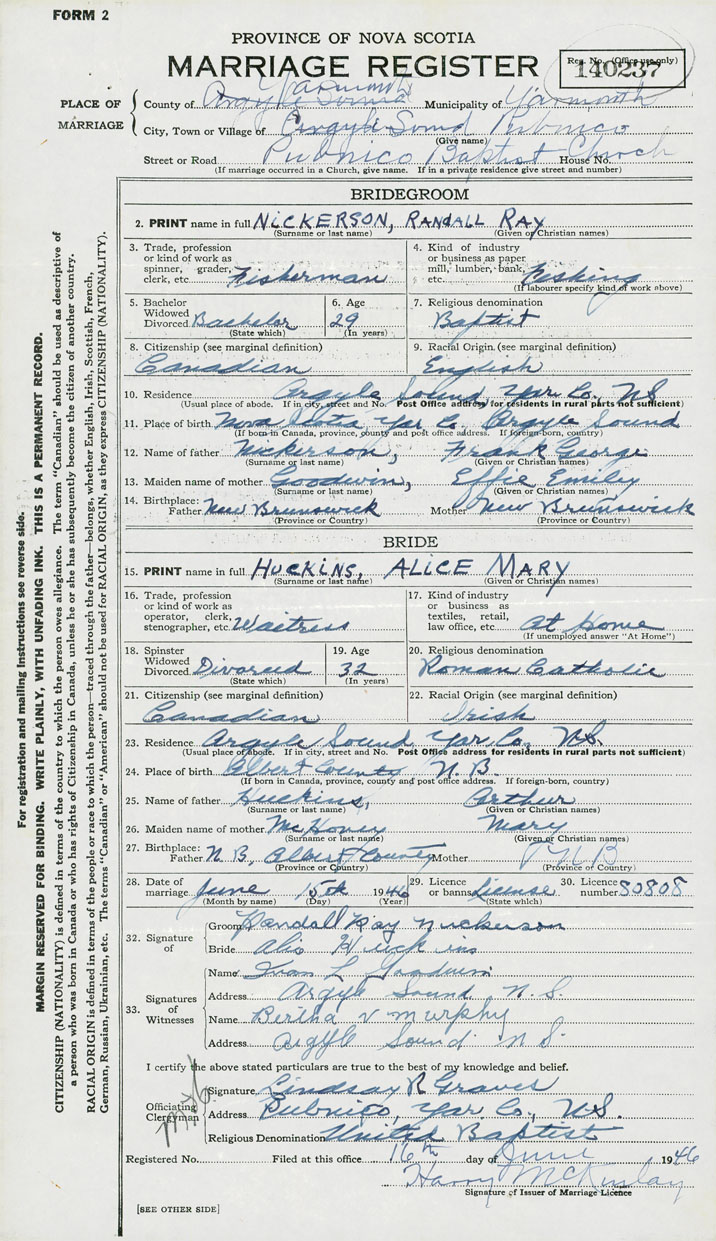 FORM 2
PROVINCE OF NOVA SCOTIA
MARRIAGE REGISTER
Reg. No. (Office use only)
140237
PLACE OF MARRIAGE
Yarmouth
County of Argyle Sound Municipality of Yarmouth
City, Town or Village of Argyle Sound Pubnico
(Give name)
Street or Road Pubnico Baptist Church House No.
(If marriage occurred in a Church, give name. If in a private residence give street and number)
BRIDEGROOM
2. PRINT name in full NICKERSON, RANDALL RAY
(Surname or last name) (Given or Christian names)
3. Trade, profession or kind of work as spinner, grader, clerk, etc. Fisherman
4. Kind of industry or business as paper mill, lumber, bank, etc. Fishing
(If labourer specify kind of work above)
5. Bachelor Widowed Divorced Bachelor
(State which)
6. Age 29
(In years)
7. Religious denomination
Baptist
8. Citizenship (see marginal definition)
Canadian
9. Racial Origin. (see marginal definition)
English
10. Residence Argyle Sound Yar Co. NS
(Usual place of abode. If in city, street and No. Post Office address for residents in rural parts not sufficient)
11. Place of birth Nova Scotia Yar Co. Argyle Sound
(If born in Canada, province, county and post office address. If foreign-born, country)
12. Name of father Nickerson, Frank George
(Surname or last name) (Given or Christian names)
13. Maiden name of mother Goodwin, Effie Emiley
(Surname or last name) (Given or Christian names)
14. Birthplace: Father New Brunswick Mother New Brunswick
(Province or Country) (Province or Country)
BRIDE
15. PRINT name in full HUCKINS, ALICE MARY
(Surname or last name) (Given or Christian names)
16. Trade, profession or kind of work as operator, clerk, stenographer, etc. Waitress
17. Kind of industry or business as textiles, retail, law office, etc. At Home
(If unemployed answer "At Home")
18. Spinster Widowed Divorced Divorced
(State which)
19. Age 32
(In years)
20. Religious denomination
Roman Catholic
21. Citizenship (see marginal definition)
Canadian
22. Racial Origin (see marginal definition)
Irish
23. Residence Argyle Sound Yar Co. N.S.
(Usual place of abode. If in city, street and No. Post Office address for residents in rural parts not sufficient)
24. Place of birth Albert County N.B.
(If born in Canada, province, county and post office address. If foreign-born, country)
25. Name of father Huckins, Arthur
(Surname or last name) (Given or Christian names)
26. Maiden name of mother Mary
(Surname or last name) (Given or Christian names)
27. Birthplace: Father N.B., Albert County Mother N B
(Province or Country) (Province or Country)
28. Date of marriage June 15th 1946
(Month by name) (Day) (Year)
29. Licence or banns License
(State which)
30. Licence number 50808
32. Signature of
Groom Randall Ray Nickerson
Bride Huckins
33. Signatures of Witnesses
Name Ivan L Goodwin
Address Argyle Sound N.S.
Name Bertha V Murphy
Address Argyle Sound N S.
I certify the above stated particulars are true to the best of my knowledge and belief.
Officiating Clergyman
Signature Lindsay R Graves
Address Pubnico, Yar Co., N.S.
Religious Denomination United Baptist
Registered No. Filed at this office 16th day of June 1946
Harry McKinlay
Signature of Issuer of Marriage Licence
[SEE OTHER SIDE]
For registration and mailing Instructions see reverse side.
MARGIN RESERVED FOR BINDING. WRITE PLAINLY, WITH UNFADING INK. THIS IS A PERMANENT RECORD.
CITIZENSHIP (NATIONALITY) is defined in terms of the country to which the person owes allegiance. The term "Canadian" should be used as descriptive of
a person who was born in Canada or who has rights of Citizenship in Canada, unless he or she has subsequently become the citizen of another country.
RACIAL ORIGIN is defined in terms of the people or race to which the person—traced through the father—belongs, whether English, Irish, Scottish, French,
German, Russian, Ukrainian, etc. The terms "Canadian" or "American" should not be used for RACIAL ORIGIN, as they express CITIZENSHIP (NATIONALITY).